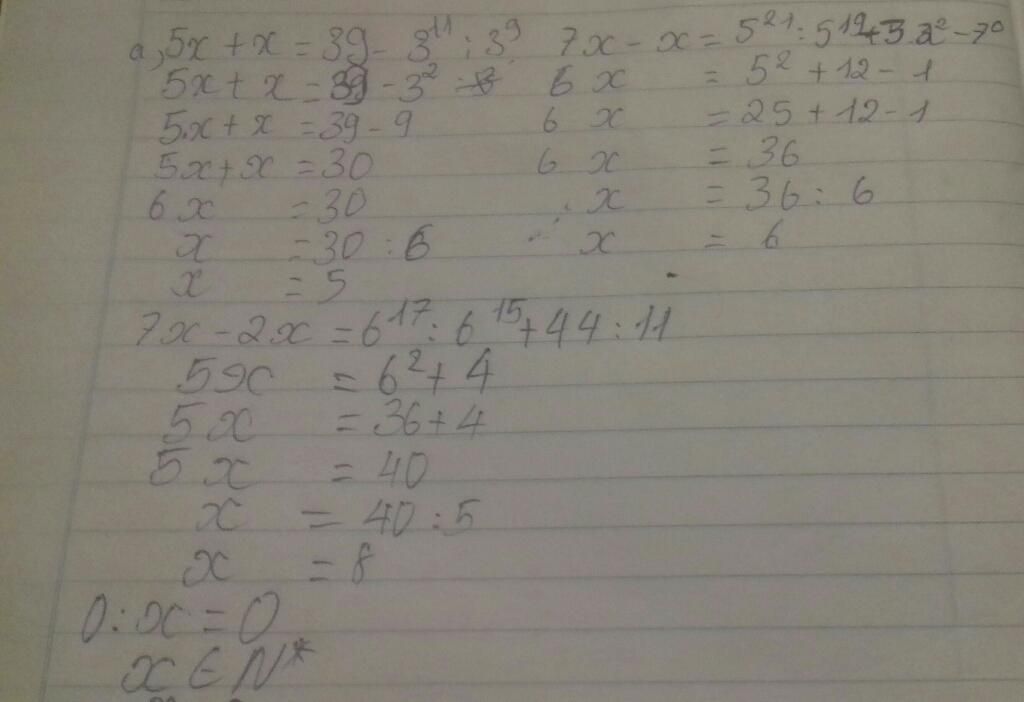 a, 5x + x = 39 - 3¹¹ : 3⁹
5x + x = 39 - 3²
5x + x = 39 - 9
5x + x = 30
6x = 30
x = 30 : 6
x = 5
7x - x = 5²¹ : 5¹⁹ + 3.2² - 7⁰
6x = 5² + 12 - 1
6x = 25 + 12 - 1
6x = 36
x = 36 : 6
x = 6
7x - 2x = 6¹⁷ : 6¹⁵ + 44 : 11
5x = 6² + 4
5x = 36 + 4
5x = 40
x = 40 : 5
x = 8
0 : x = 0
x ∈ N*